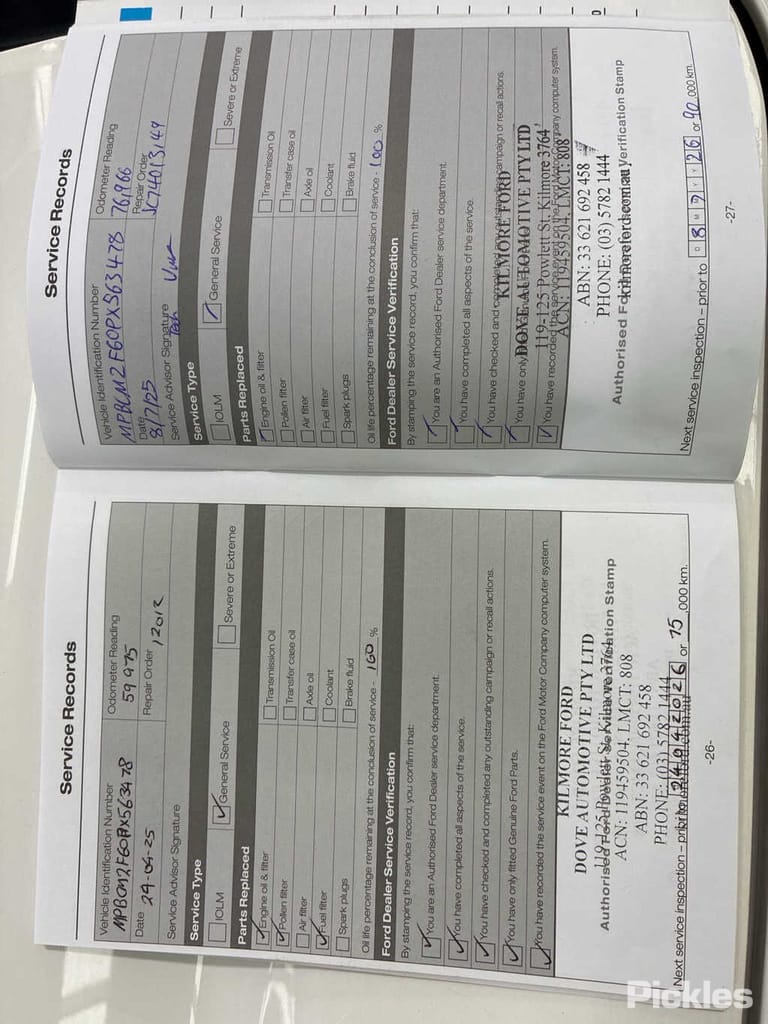 Service Records
Vehicle Identification Number
Odometer Reading
MPBCM2F60PX563478
59975
Date
Repair Order
29-04-25
12012
Service Advisor Signature
Service Type
IOLM
General Service
Severe or Extreme
Parts Replaced
Engine oil & filter
Transmission Oil
Pollen filter
Transfer case oil
Air filter
Axle oil
Fuel filter
Coolant
Spark plugs
Brake fluid
Oil life percentage remaining at the conclusion of service - 100 %
Ford Dealer Service Verification
By stamping the service record, you confirm that:
You are an Authorised Ford Dealer service department.
You have completed all aspects of the service.
You have checked and completed any outstanding campaign or recall actions.
You have only fitted Genuine Ford Parts.
You have recorded the service event on the Ford Motor Company computer system.
KILMORE FORD
DOVE AUTOMOTIVE PTY LTD
119-125 Powlett St, Kilmore 3764
Authorised Ford Dealer Service Verification Stamp
ACN: 119459504, LMCT: 808
ABN: 33 621 692 458
PHONE: (03) 5782 1444
Next service inspection – prior to 24042026 or 75 ,000 km.
-26-
Service Records
Vehicle Identification Number
Odometer Reading
MPBCM2F60PX563478
76,966
Date
Repair Order
8/7/25
JC74013149
Service Advisor Signature
Service Type
IOLM
General Service
Severe or Extreme
Parts Replaced
Engine oil & filter
Transmission Oil
Pollen filter
Transfer case oil
Air filter
Axle oil
Fuel filter
Coolant
Spark plugs
Brake fluid
Oil life percentage remaining at the conclusion of service - 100 %
Ford Dealer Service Verification
By stamping the service record, you confirm that:
You are an Authorised Ford Dealer service department.
You have completed all aspects of the service.
You have checked and completed any outstanding campaign or recall actions.
KILMORE FORD
You have only
DOVE AUTOMOTIVE PTY LTD
119-125 Powlett St, Kilmore 3764
You have recorded the service event on the Ford Motor Company computer system.
ACN: 119459504, LMCT: 808
ABN: 33 621 692 458
PHONE: (03) 5782 1444
kilmoreford.com.au
Authorised Ford Dealer Service Verification Stamp
Next service inspection – prior to 8 7 26 or 90 ,000 km.
-27-
Pickles